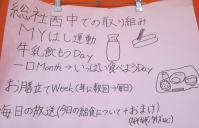 総社西中での取り組み
MYはし運動
牛乳飲もうDay
一口Month→いっぱい食べようDay
お膳立てWeek(年に数回→毎日)
毎日の放送(今日の給食について+おまけ)